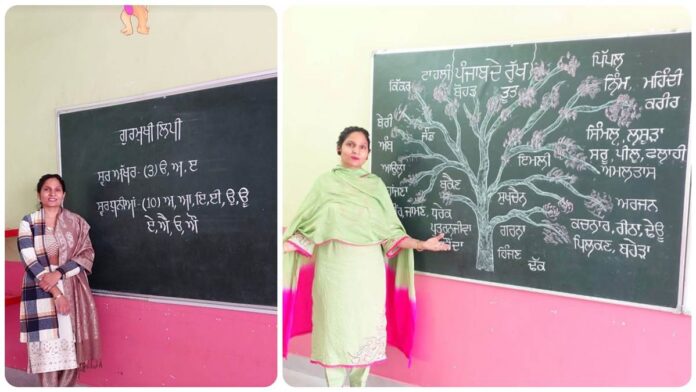 ਗੁਰਮੁਖੀ ਲਿਪੀ
ਸੁਰ ਅੱਖਰ- (3) ੳ, ਅ, ੲ
ਸੁਰ ਧੁਨੀਆਂ- (10) ਅ, ਆ, ਇ, ਈ, ਉ, ਊ
ਏ, ਐ, ਓ, ਔ
ਪੰਜਾਬ ਦੇ ਰੁੱਖ
ਟਾਹਲੀ
ਕਿੱਕਰ
ਬੋਹੜ
ਤੂਤ
ਪਿੱਪਲ
ਨਿੰਮ, ਮਹਿੰਦੀ
ਕਰੀਰ
ਬੇਰੀ
ਅੰਬ
ਜੰਡ
ਸਿੰਮਲ, ਲਸੂੜਾ
ਸਰੂ, ਪੀਲੂ, ਫਲਾਹੀ
ਅਮਲਤਾਸ
ਇਮਲੀ
ਬਕੈਣ
ਸੁਖਚੈਨ
ਅਰਜਨ
ਜਾਮਣ, ਧਰੇਕ
ਪੁਤਰਨਜੀਵਾ
ਗਰਨਾ
ਕਚਨਾਰ, ਰੀਠਾ, ਢੇਊ
ਪਿਲਕਣ, ਬਹੇੜਾ
ਹਿੰਜਣ
ਢੱਕ